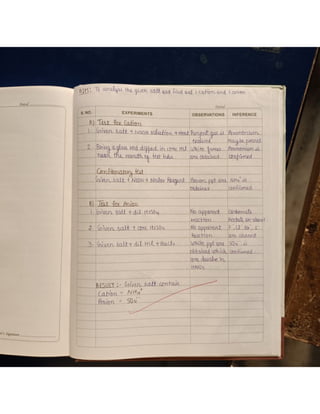 AIM: To analyse the given salt and find out 1 cation and 1 anion
Dated
S. NO. EXPERIMENTS OBSERVATIONS INFERENCE
A) Test for Cation
1. Given salt + NaOH solution + Heat Pungent gas is evolved Ammonium may be present
2. Bring a glass rod dipped in conc HCl near the mouth of test tube White fumes are obtained Ammonium is confirmed
Confirmatory Test
Given salt + NaOH + Nessler Reagent Brown ppt are obtained NH4+ is confirmed
B) Test for Anion
1. Given salt + dil H2SO4 No apparent reaction Carbonate
2. Given salt + conc H2SO4 No apparent reaction are absent
3. Given salt + dil HCl + BaCl2 White ppt are obtained which are in SO4 is confirmed
RESULT :- Given salt contain
Cation = NH4+
Anion = SO4